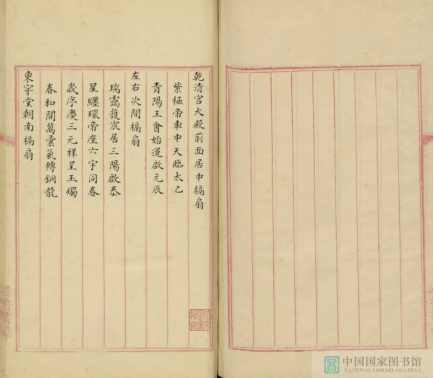 乾清宮大殿前面居中槅扇
紫極帝車中天臨太乙
青陽王會始運啟元辰
左右次間槅扇
瑞靄馥宸居三陽啟泰
星纏環帝座六宇同春
歲序慶三元祥呈玉燭
春和開萬彙氣轉銅龍
東穿堂朝南槅扇
中国国家图书馆
NATIONAL LIBRARY OF CHINA